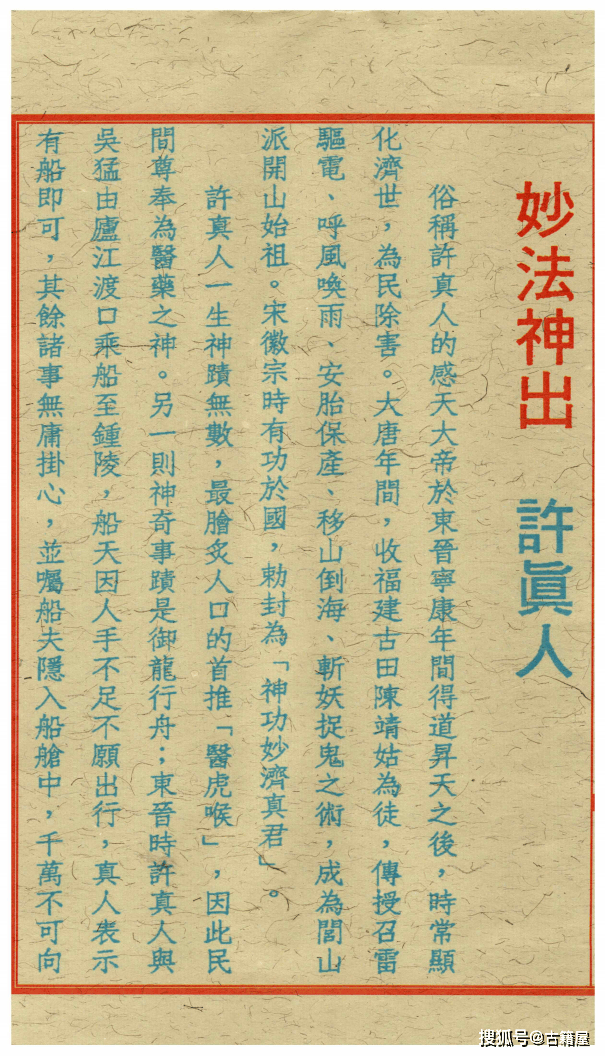 妙法神出 許眞人
俗稱許真人的感天大帝於東晉寧康年間得道昇天之後，時常顯
化濟世，為民除害。大唐年間，收福建古田陳靖姑為徒，傳授召雷
驅電、呼風喚雨、安胎保產、移山倒海、斬妖捉鬼之術，成為閭山
派開山始祖。宋徽宗時有功於國，勅封為「神功妙濟真君」。
許真人一生神蹟無數，最膾炙人口的首推「醫虎喉」，因此民
間尊奉為醫藥之神。另一則神奇事蹟是御龍行舟；東晉時許真人與
吳猛由廬江渡口乘船至鍾陵，船夭因人手不足不願出行，真人表示
有船即可，其餘諸事無庸掛心，並囑船夫隱入船艙中，千萬不可向
搜狐号@古籍屋